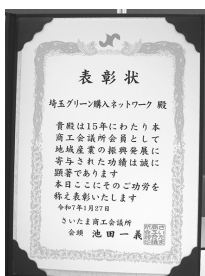 表彰状
埼玉グリーン購入ネットワーク 殿
貴殿は15年にわたり本
商工会議所会員として
地域産業の振興発展に
寄与された功績は誠に
顕著であります
本日ここにそのご功労を
称え表彰いたします
令和7年1月27日
さいたま商工会議所
会頭 池田一義